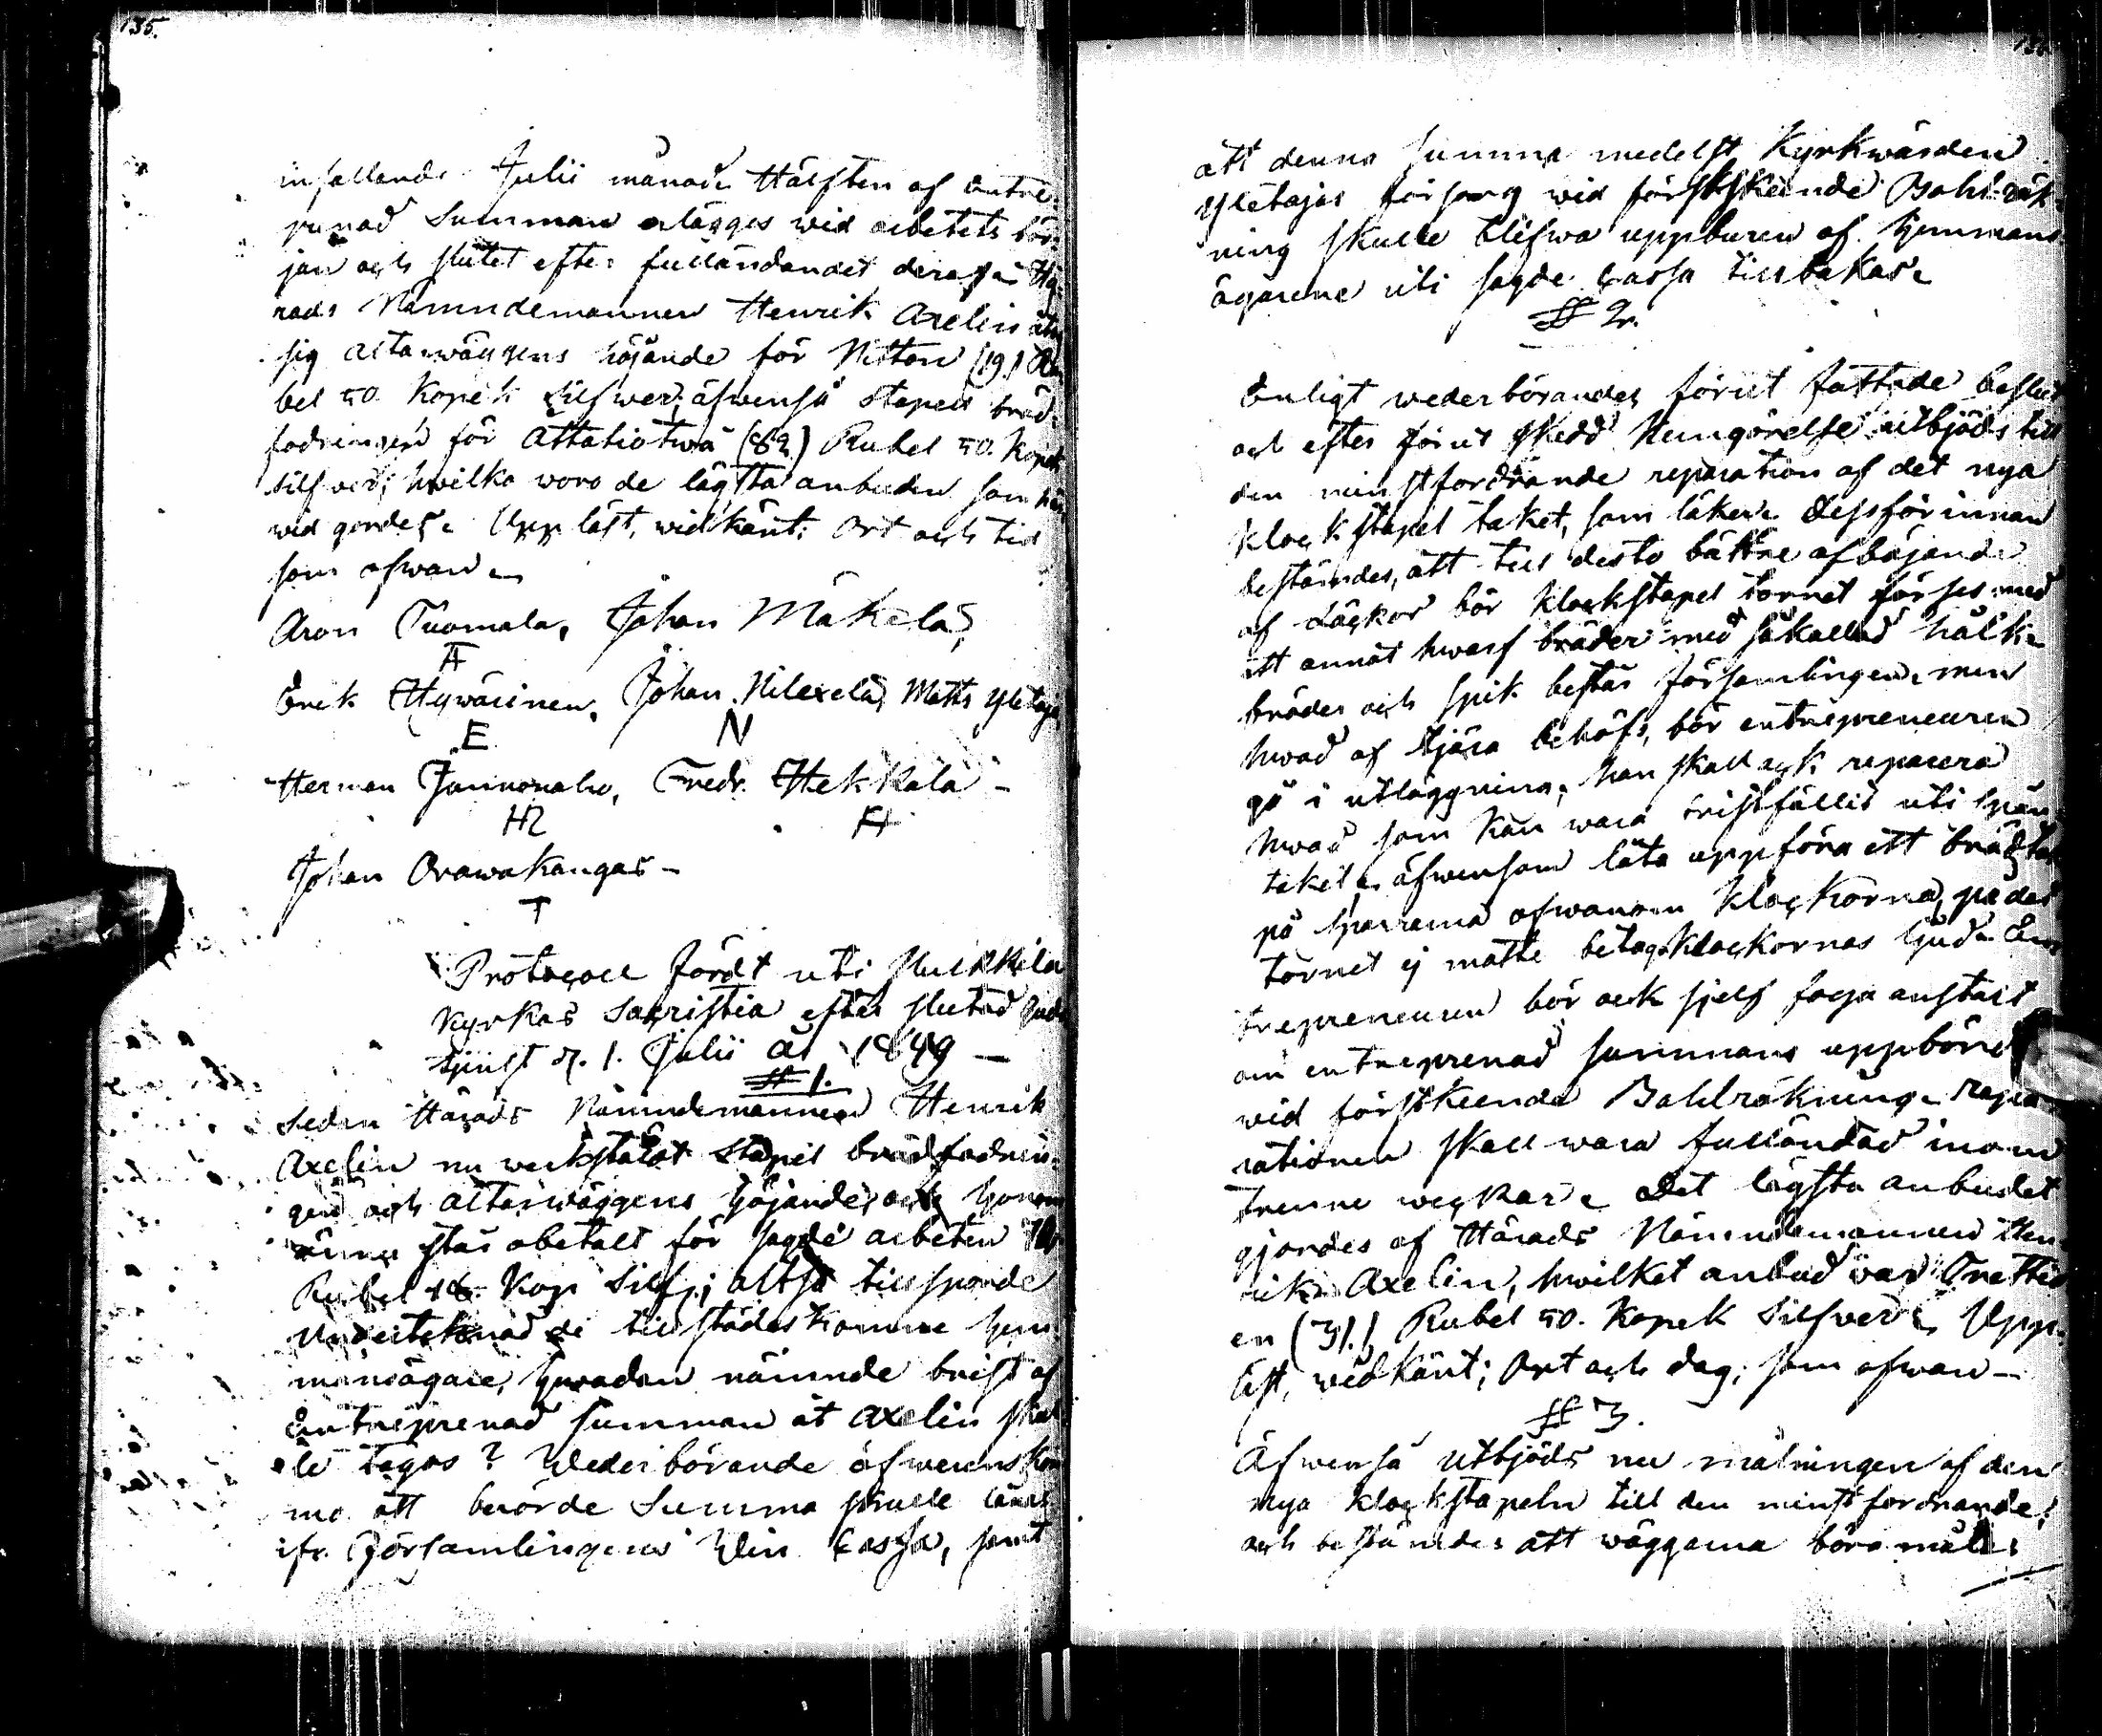 135.
infallande Julii månad. Hälften af Entre-
prenad Summan erlägges wid arbetets bör-
jan och slutet efter fulländandet deraf. Hä-
rads Nämndemannen Henrik Axelin åtog
sig altarwäggens höjande för Nitton (19.) Ru-
bel 50. Kopek Silfwer; äfwenså Stapels bräd-
fodringen för Åttatiotwå (82.) Rubel 50. Kopek
Silfwer; hwilka woro de lägsta anbuden som här
wid gordes. Uppläst, widkänt; Ort och tid
som ofwan.
Aron Tuomala, Johan Mäkelä,
A
Erik Hywärinen, Johan Nilexelä, Matts Yletajo
E N
Herman Junnonaho, Fredr. Hekkala –
H FH
Johan Orawakangas –
T
Protocoll fördt uti Pulkkila
Kyrkas Sakristia efter slutad Guds
tjenst d. 1. Julii år 1849 —
§ 1.
Sedan Härads Nämndemannen Henrik
Axelin nu werkstält Stapel brädfodrin-
gen och altarwäggens höjande, och honom
ännu står obetalt för sagde arbeten
Rubel Kop Silf; altså tillsporde
Undertecknad de tillstädeskomne hem-
mansägare, hwadan nämnde brist af
Entreprenad summan åt Axelin skul-
le tagas? Wederbörande öfwerenskom-
mo att berörde Summa skulle lånas
ifr. Församlingens Win Cassa, samt
136.
att denna summa medelst Kyrkwärden
Yletajos försorg wid förstskeende Bohlräk-
ning skulle blifwa uppburen af hemmans-
ägarene uti sagde Cassa tillbakas.
§ 2.
Enligt wederbörandes förut fattade beslut
och efter förut skedd Kungörelse utbjöds till
den minstfordrande reparation af det nya
Klockstapel taket, som läker. Dessförinnan
bestämdes, att till desto bättre afböjande
af Läckor bör Klockstapel tornet förses med
ett annat hwarf bräder med såkallad hålk.
bräder och spik bestås Församlingen, men
hwad af tjära behöfs, bör entrepreneuren
gå i utläggning; han skall ock reparera
hwad som kan wara bristfälligt uti spån
taket, äfwensom låta uppföra ett brädtak
på sparrarna ofwanom Klockorna, på det
tornet ej måtte betaga Klockornas ljud. En-
trepreneuren bör ock sjelf foga anstalt
om entreprenad summans uppbörd
wid förstskeende Bohlräkning. Repa-
rationen skall wara fulländad inom
trenne weckor. Det lägsta anbudet
gjordes af Härads Nämndemannen Hen-
rik Axelin, hwilket anbud war Trettio
en (31.) Rubel 50. Kopek Silfwer. Upp-
läst, widkänt; Ort och dag; som ofwan —
§ 3.
Äfwenså utbjöds nu målningen af den
nya Klockstapeln till den minstfordrande;
och bestämdes att wäggarna böra målas